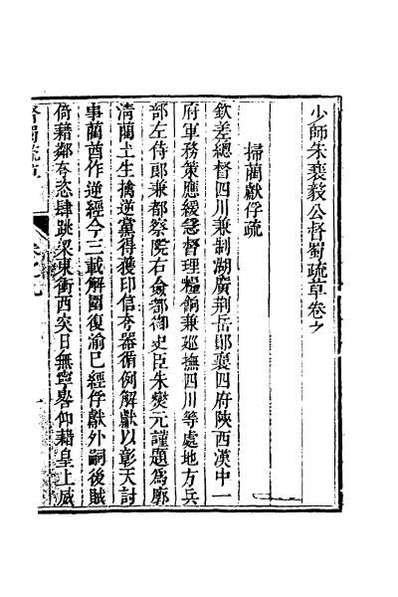 少師朱襄毅公督蜀疏草卷之
掃藺獻俘疏
欽差總督四川兼制湖廣荆岳鄖襄四府陝西漢中一
府軍務策應緩急督理糧餉兼廵撫四川等處地方兵
部左侍郎兼都察院右僉都御史臣朱燮元謹題為廓
清藺土生擒逆黨得獲印信夸器循例解獻以彰天討
事藺酋作逆經今三載解圍復渝已經俘獻外嗣後賊
倚藉鄰夸恣肆跳梁東衝西突日無寧晷仰藉皇上威
督蜀疏草